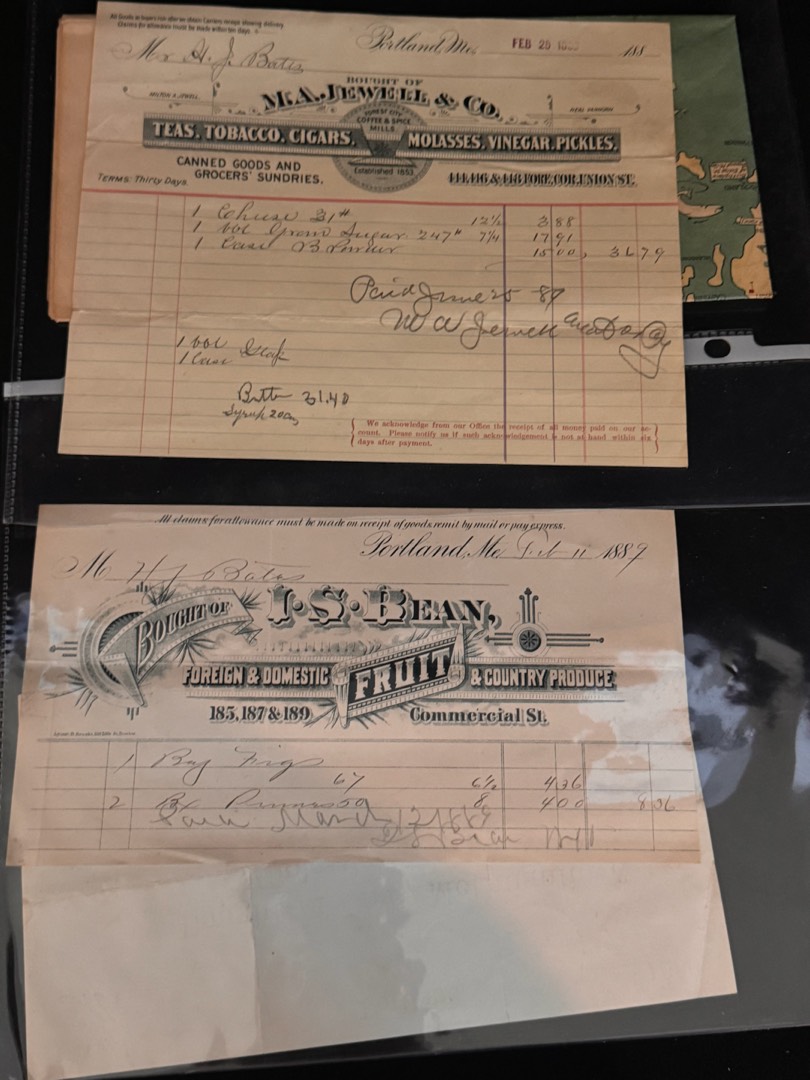 All Goods at buyers risk after we obtain Carriers receipt showing delivery.
Claims for allowance must be made within ten days.
Portland, Me. FEB 25 188
Mr H. J. Bates
BOUGHT OF
M.A. JEWELL & CO.
MILTON A. JEWELL.
FOREST CITY
COFFEE & SPICE
MILLS
TEAS, TOBACCO, CIGARS, MOLASSES, VINEGAR, PICKLES.
Established 1853
CANNED GOODS AND
GROCERS' SUNDRIES.
444,446 & 448 FORE, COR. UNION ST.
TERMS: Thirty Days
1 Cheese 31# 12½ 3 88
1 bbl Gran Sugar 247# 7¼ 17 91
1 Case B 15 00, 36 79
Paid June 25 89
M A Jewell
1 bbl
1 Case
31.40
Syrup
We acknowledge from our Office the receipt of all money paid on our ac-
count. Please notify us if such acknowledgement is not at hand within six
days after payment.
All claims for allowance must be made on receipt of goods remit by mail or pay express.
Portland, Me. Feb 11 1889
M H J Bates
BOUGHT OF
I.S. BEAN,
FOREIGN & DOMESTIC FRUIT & COUNTRY PRODUCE
185, 187 & 189 Commercial St.
1 Bag Figs
67 6½ 4 36
2 Bx Prunes 50 8 4 00 8 36
Paid March 1889
I S Bean